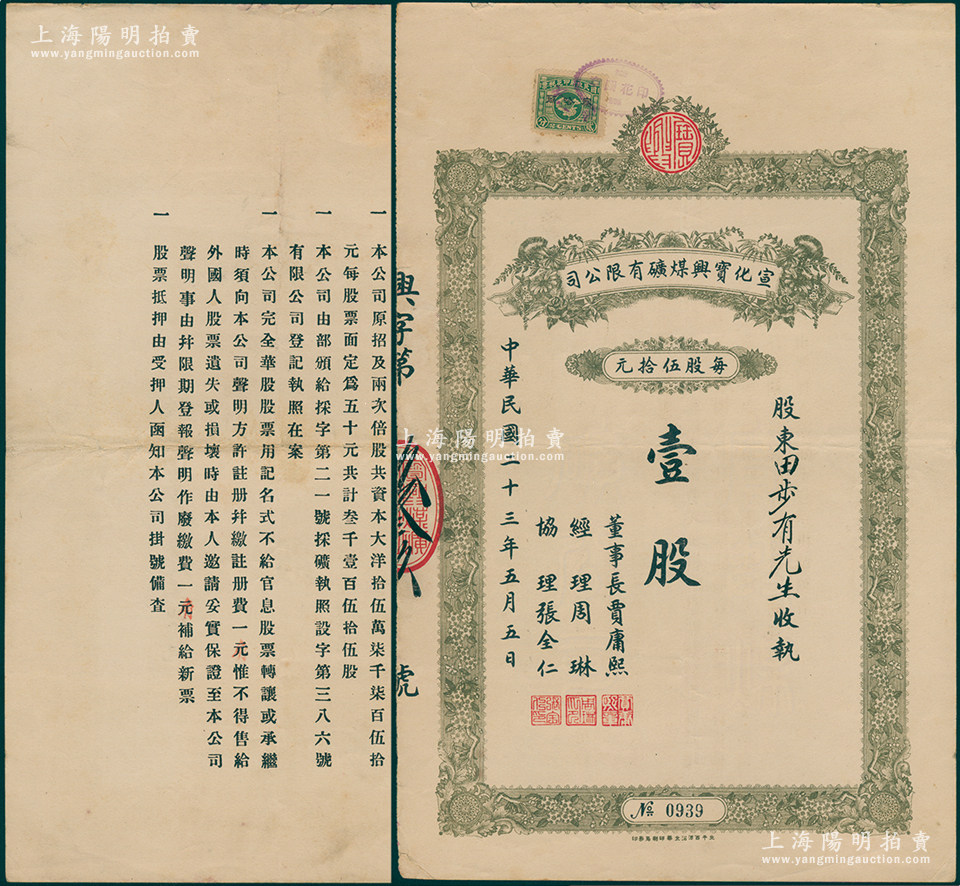 上海陽明拍賣
www.yangmingauction.com
一 本公司原招及兩次倍股共資本大洋拾伍萬柒千柒百伍拾
元每股票面定爲五十元共計叁千壹百伍拾伍股
一 本公司由部頒給採字第二一號採礦執照設字第三八六號
有限公司登記執照在案
一 本公司完全華股股票用記名式不給官息股票轉讓或承繼
時須向本公司聲明方許註册幷繳註册費一元惟不得售給
外國人股票遺失或損壞時由本人邀請妥實保證至本公司
聲明事由幷限期登報聲明作廢繳費一元補給新票
一 股票抵押由受押人函知本公司掛號備查
興字第
號
宣化寶興煤礦有限公司
每股伍拾元
股東田步有先生收執
壹股
董事長賈庸熙
經理周琳
協理張全仁
中華民國二十三年五月五日
№ 0939
上海陽明拍賣
www.yangmingauction.com
上海陽明拍賣
www.yangmingauction.com